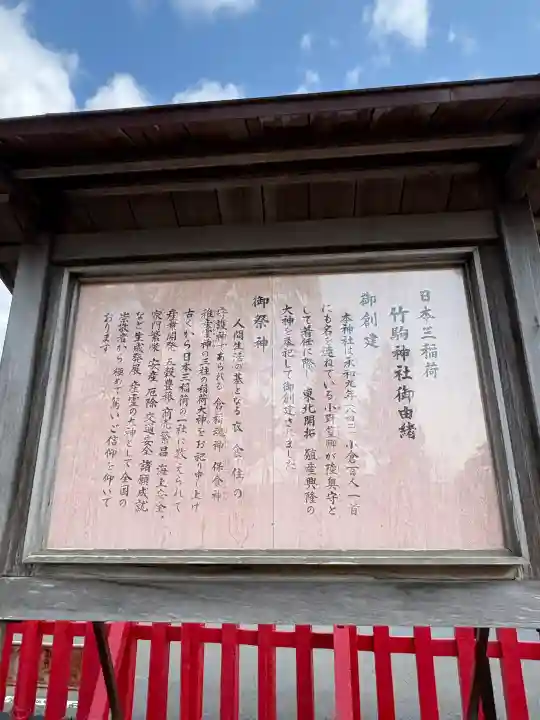 日本三稲荷
竹駒神社御由緒
御創建
本神社は承和九年(八四二)小倉百人一首
にも名を連ねている小野篁卿が陸奥守と
して着任に際し、東北開拓、殖産興隆の
大神を奉祀して御創建されました
御祭神
人間生活の基となる衣食住の
守護神であられる倉稲魂神 保食神
稚産霊神の三柱の稲荷大神をお祀り申し上げ
古くから日本三稲荷の一社に数えられて
産業開発 五穀豊穣 商売繁昌 海上安全
家門繁栄 安産 厄除 交通安全 諸願成就
など生成発展 産霊の大神として全国の
崇敬者から極めて篤いご信仰を仰いで
おります